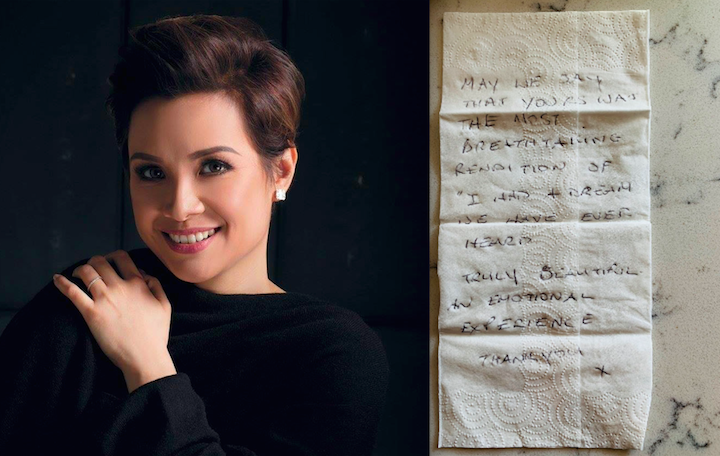 MAY WE SAY
THAT YOURS WAS
THE MOST
BREATHTAKING
RENDITION OF
"I HAD A DREAM
WE HAVE EVER
HEARD
TRULY BEAUTIFUL
AN EMOTIONAL
EXPERIENCE
THANKYOU
X